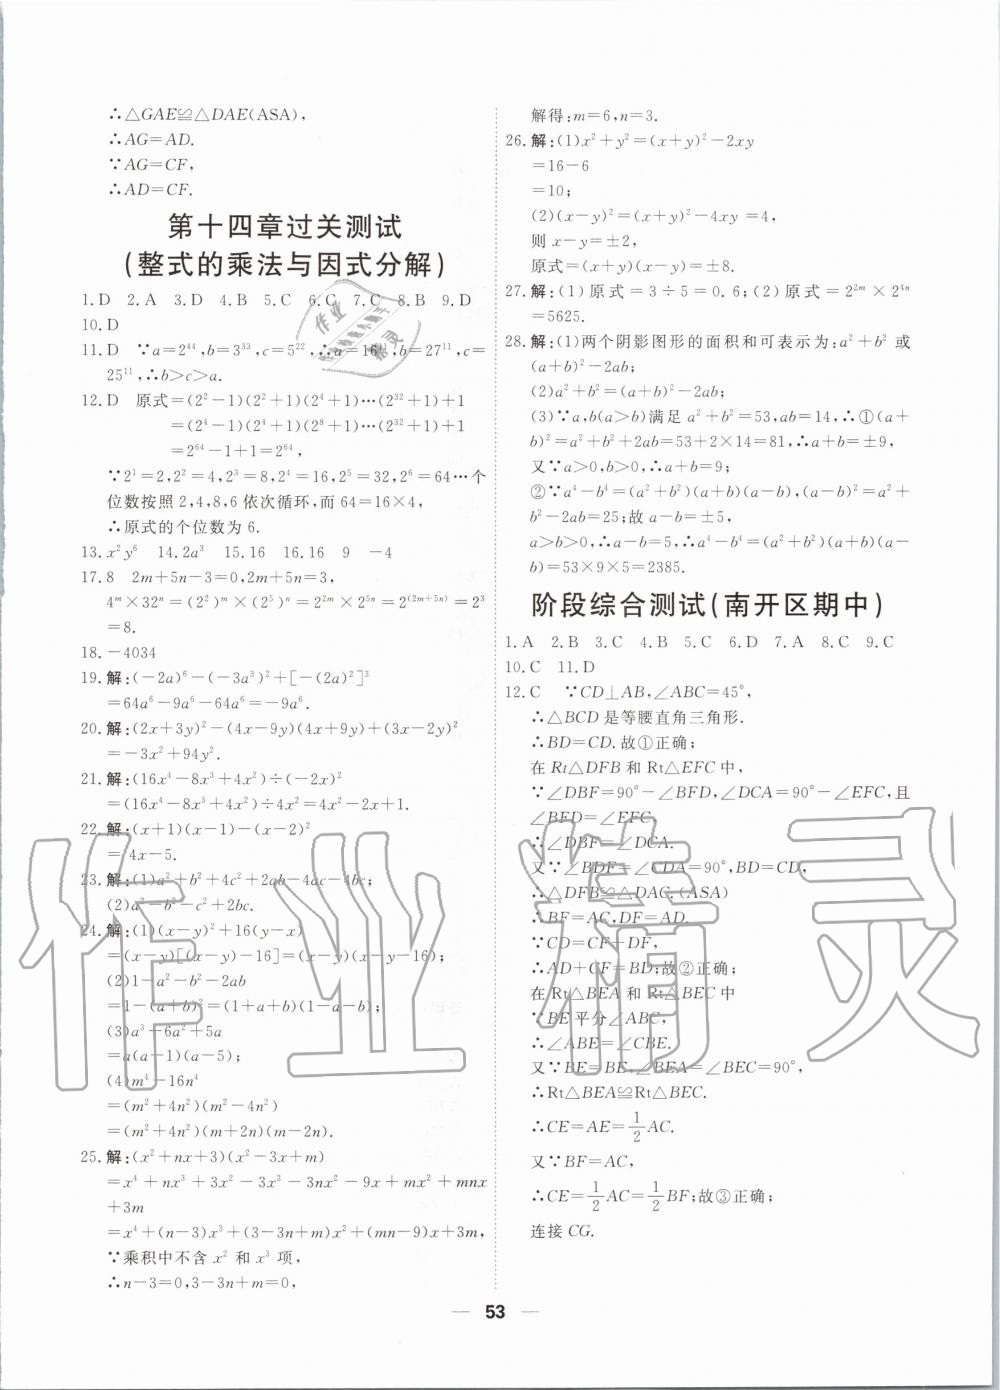 ∴△GAE≌△DAE(ASA),
∴AG=AD.
∵AG=CF,
∴AD=CF.
第十四章过关测试
(整式的乘法与因式分解)
1.D 2.A 3.D 4.B 5.C 6.C 7.C 8.B 9.D
10.D
11.D ∵a=2⁴⁴,b=3³³,c=5²²,∴a=16¹¹,b=27¹¹,c=
25¹¹,∴b>c>a.
12.D 原式=(2²-1)(2²+1)(2⁴+1)…(2³²+1)+1
=(2⁴-1)(2⁴+1)(2⁸+1)…(2³²+1)+1
=2⁶⁴-1+1=2⁶⁴,
∵2¹=2,2²=4,2³=8,2⁴=16,2⁵=32,2⁶=64…个
位数按照 2,4,8,6 依次循环,而 64=16×4,
∴原式的个位数为 6.
13.x²y⁶ 14.2a³ 15.16 16.16 9 -4
17.8 2m+5n-3=0,2m+5n=3,
4ᵐ×32ⁿ=(2²)ᵐ×(2⁵)ⁿ=2²ᵐ×2⁵ⁿ=2⁽²ᵐ⁺⁵ⁿ⁾=2³
=8.
18.-4034
19.解:(-2a)⁶-(-3a³)²+[-(2a)²]³
=64a⁶-9a⁶-64a⁶=-9a⁶.
20.解:(2x+3y)²-(4x-9y)(4x+9y)+(3x-2y)²
=-3x²+94y².
21.解:(16x⁴-8x³+4x²)÷(-2x)²
=(16x⁴-8x³+4x²)÷4x²=4x²-2x+1.
22.解:(x+1)(x-1)-(x-2)²
=4x-5.
23.解:(1)a²+b²+4c²+2ab-4ac-4bc;
(2)a²-b²-c²+2bc.
24.解:(1)(x-y)²+16(y-x)
=(x-y)[(x-y)-16]=(x-y)(x-y-16);
(2)1-a²-b²-2ab
=1-(a+b)²=(1+a+b)(1-a-b);
(3)a³-6a²+5a
=a(a-1)(a-5);
(4)m⁴-16n⁴
=(m²+4n²)(m²-4n²)
=(m²+4n²)(m+2n)(m-2n).
25.解:(x²+nx+3)(x²-3x+m)
=x⁴+nx³+3x²-3x³-3nx²-9x+mx²+mnx
+3m
=x⁴+(n-3)x³+(3-3n+m)x²+(mn-9)x+3m,
∵乘积中不含 x² 和 x³ 项,
∴n-3=0,3-3n+m=0,
解得:m=6,n=3.
26.解:(1)x²+y²=(x+y)²-2xy
=16-6
=10;
(2)(x-y)²=(x+y)²-4xy=4,
则 x-y=±2,
原式=(x+y)(x-y)=±8.
27.解:(1)原式=3÷5=0.6;(2)原式=2²ᵐ×2⁴ⁿ
=5625.
28.解:(1)两个阴影图形的面积和可表示为:a²+b² 或
(a+b)²-2ab;
(2)a²+b²=(a+b)²-2ab;
(3)∵a,b(a>b)满足 a²+b²=53,ab=14,∴①(a+
b)²=a²+b²+2ab=53+2×14=81,∴a+b=±9,
又∵a>0,b>0,∴a+b=9;
②∵a⁴-b⁴=(a²+b²)(a+b)(a-b),(a-b)²=a²+
b²-2ab=25;故 a-b=±5,
a>b>0,∴a-b=5,∴a⁴-b⁴=(a²+b²)(a+b)(a-
b)=53×9×5=2385.
阶段综合测试(南开区期中)
1.A 2.B 3.C 4.B 5.C 6.D 7.A 8.C 9.C
10.C 11.D
12.C ∵CD⊥AB,∠ABC=45°,
∴△BCD 是等腰直角三角形.
∴BD=CD.故①正确;
在 Rt△DFB 和 Rt△EFC 中,
∵∠DBF=90°-∠BFD,∠DCA=90°-∠EFC,且
∠BFD=∠EFC,
∴∠DBF=∠DCA.
又∵∠BDF=∠CDA=90°,BD=CD,
∴△DFB≌△DAC.(ASA)
∴BF=AC,DF=AD.
∵CD=CF+DF,
∴AD+CF=BD;故②正确;
在 Rt△BEA 和 Rt△BEC 中
∵BE 平分∠ABC,
∴∠ABE=∠CBE.
又∵BE=BE,∠BEA=∠BEC=90°,
∴Rt△BEA≌Rt△BEC.
∴CE=AE=1/2AC.
又∵BF=AC,
∴CE=1/2AC=1/2BF;故③正确;
连接 CG.
53
作业精灵